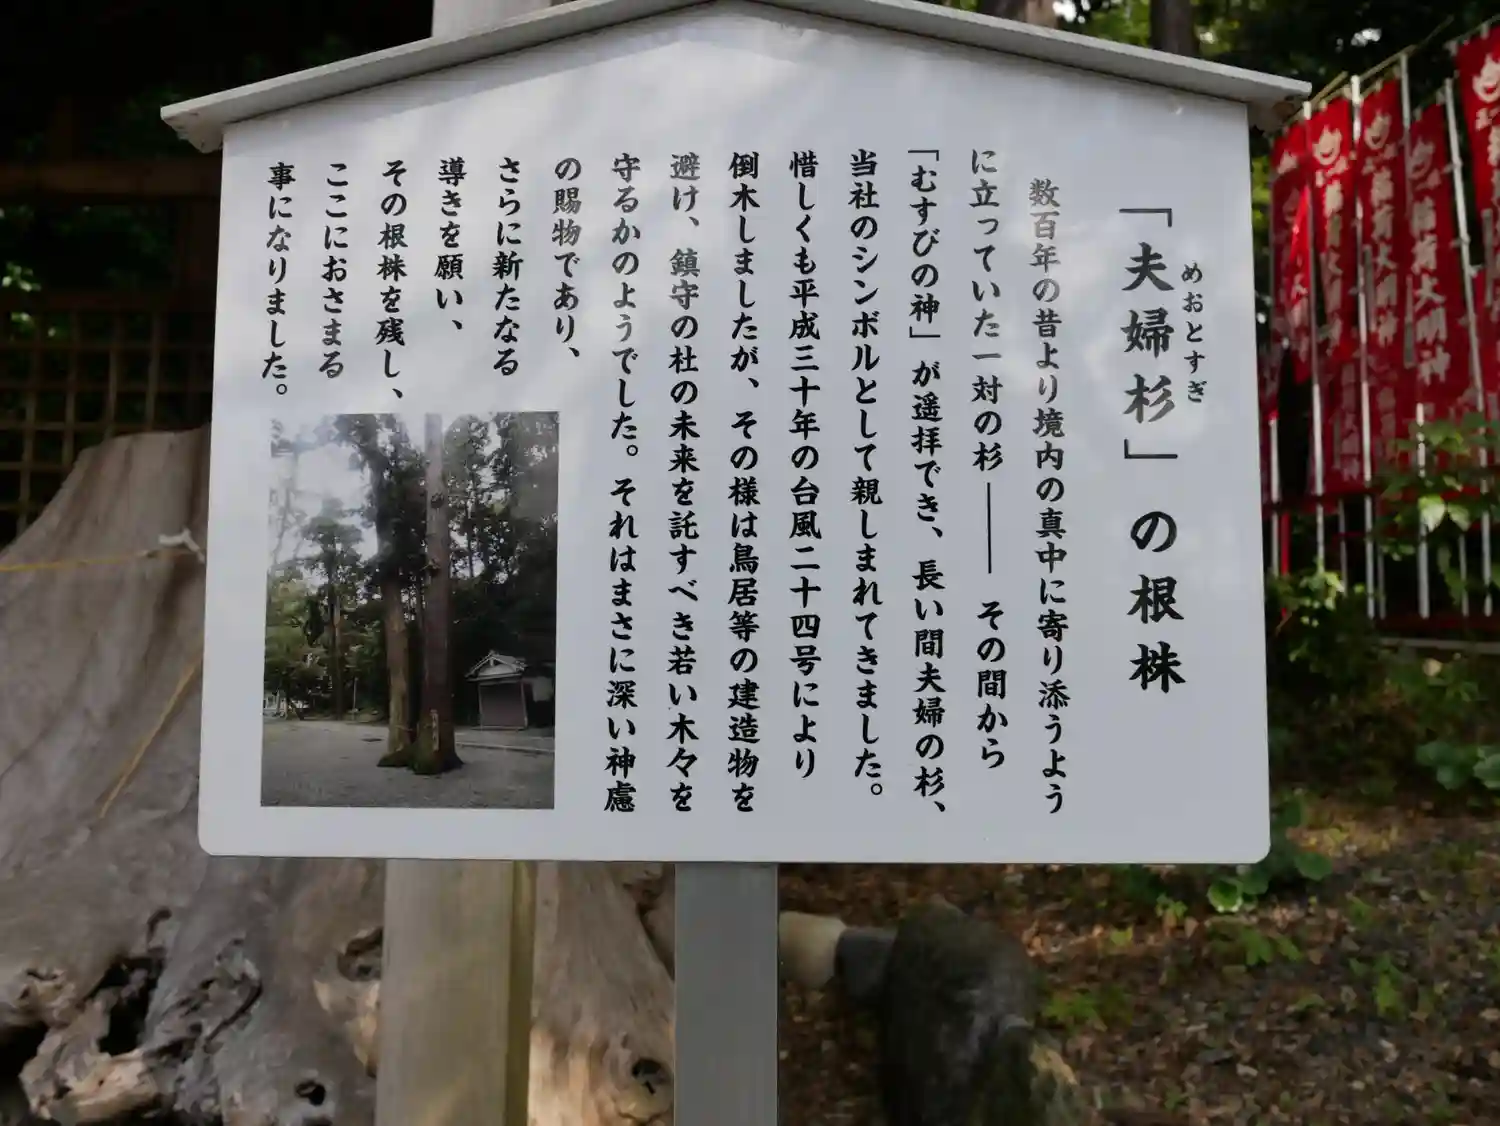 「夫婦杉」の根株
めおとすぎ
数百年の昔より境内の真中に寄り添うよう
に立っていた一対の杉 ―― その間から
「むすびの神」が遥拝でき、長い間夫婦の杉、
当社のシンボルとして親しまれてきました。
惜しくも平成三十年の台風二十四号により
倒木しましたが、その様は鳥居等の建造物を
避け、鎮守の杜の未来を託すべき若い木々を
守るかのようでした。それはまさに深い神慮
の賜物であり、
さらに新たなる
導きを願い、
その根株を残し、
ここにおさまる
事になりました。
稲荷大明神
稲荷大明神
稲荷大明神